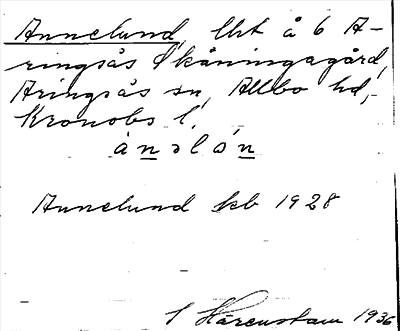 Annelund, lht å 6 A-
ringsås Skåningagård,
Aringsås sn, Allbo hd,
Kronobs l.
ànəlón
Annelund kb 1928
Härenstam 1936